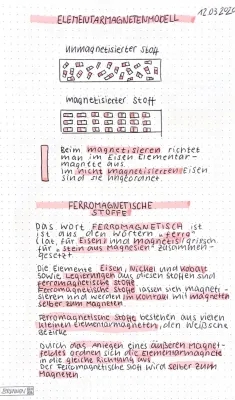 12.03.2020
ELEMENTARMAGNETENMODELL
unmagnetisierter Stoff
magnetisierter Stoff
Beim magnetisieren richtet
man im Eisen Elementar-
magnete aus.
Im nicht magnetisierten Eisen
sind sie ungeordnet.
FERROMAGNETISCHE
STOFFE
DAS WORT FERROMAGNETISCH ist
ist aus den Wörtern "ferro"
(lat. für Eisen) und magnetis (griech.
für "Stein aus Magnesien" zusammen-
gesetzt.
Die Elemente Eisen, Nickel und Kobalt
sowie Legierungen aus diesen Stoffen sind
ferromagnetische Stoffe.
Ferromagnetische Stoffe lassen sich magneti-
sieren und werden im Kontakt mit Magneten
selber zum Magneten.
Ferromagnetische Stoffe bestehen aus vielen
kleinen Elementarmagneten, den Weißsche
Bezirke
Durch das Anlegen eines äußeren Magnet-
feldes ordnen sich die Elementarmagnete
in die gleiche Richtung aus.
Der ferromagnetische Stoff wird selber zum
Magneten.